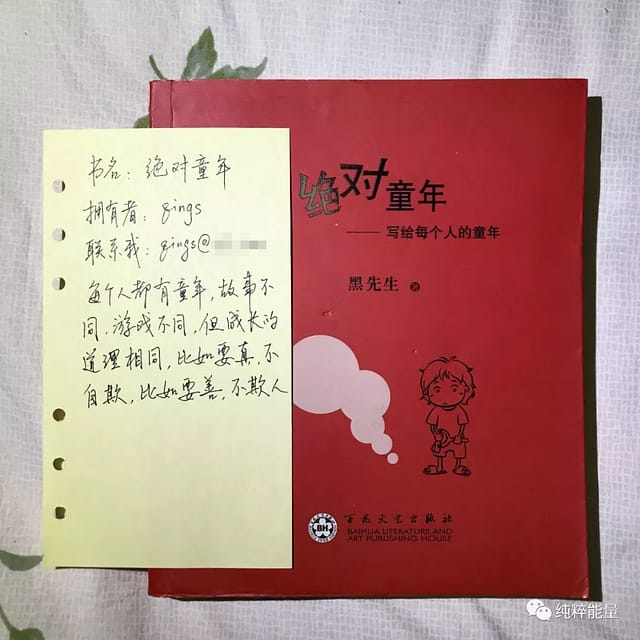 书名：绝对童年
拥有者：qings
联系我：qings@
每个人都有童年，故事不
同，游戏不同，但成长的
道理相同，比如要真，不
自欺，比如要善，不欺人
绝对童年
——写给每个人的童年
黑先生 著
BH
百花文艺出版社
BAIHUA LITERATURE AND
ART PUBLISHING HOUSE
纯粹能量